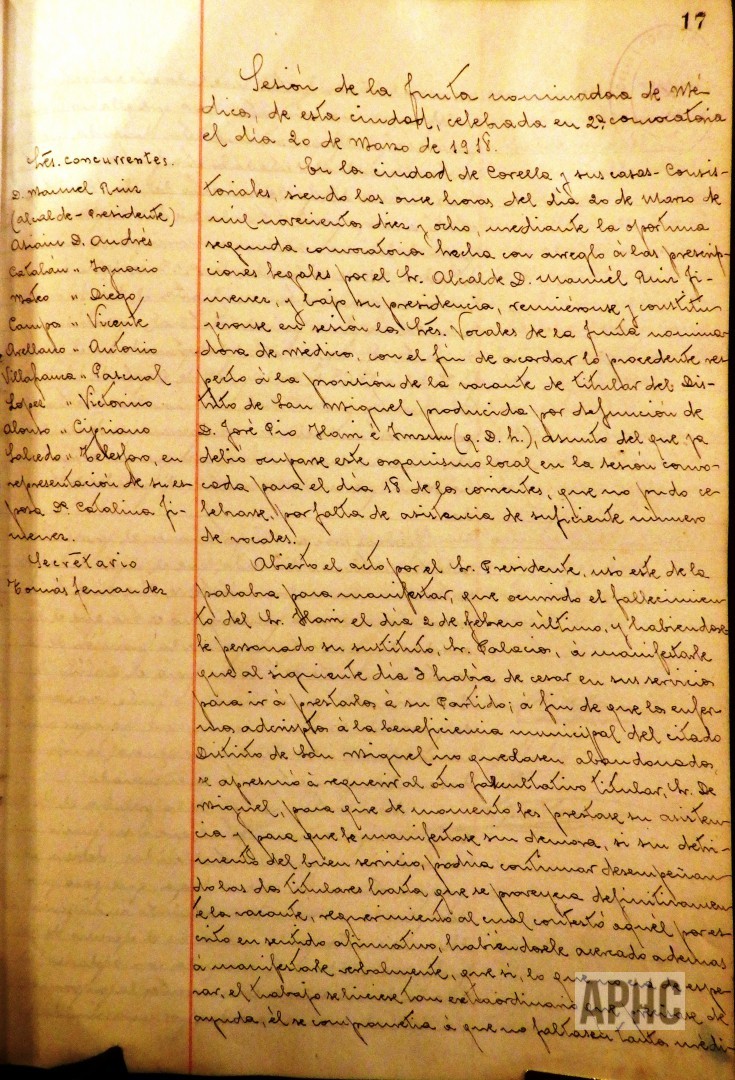 17
Sesión de la Junta nominadora de Mé-
dicos, de esta ciudad, celebrada en 2ª convocatoria
el día 20 de Marzo de 1918.
Sres. concurrentes.
D. Manuel Ruiz
(Alcalde-Presidente)
Asiain D. Andrés
Catalán " Ignacio
Mateo " Diego
Campo " Vicente
Arellano " Antonio
Villafranca " Pascual
López " Victorino
Alonso " Cipriano
Salcedo " Telesforo, en
representación de su es-
posa Dª Catalina Ji-
menez.
Secretario
Tomás Fernandez
En la ciudad de Corella y sus casas-Consis-
toriales, siendo las once horas del día 20 de Marzo de
mil novecientos diez y ocho, mediante la oportuna
segunda convocatoria hecha con arreglo á las prescrip-
ciones legales por el Sr. Alcalde D. Manuél Ruiz Ji-
menez, y bajo su presidencia, reuniéronse y constitu-
yéronse en sesión los Sres. Vocales de la Junta nomina-
dora de médico, con el fin de acordar lo procedente res-
pecto á la provisión de la vacante de titular del Dis-
trito de San Miguel producida por defunción de
D. José Pio (q. D. h.), asunto del que ya
debió ocuparse este organismo local en la sesión convo-
cada para el día 18 de los corrientes, que no pudo ce-
lebrarse, por falta de asistencia de suficiente número
de vocales.
Abierto el acto por el Sr. Presidente, usó este de la
palabra para manifestar, que ocurrido el fallecimien-
to del Sr. el día 2 de febrero último, y habiendose-
le personado su sustituto, Sr. Palacios, a manifestarle
que al siguiente dia 3 había de cesar en sus servicios
para ir á prestarlos á su Partido; á fin de que los enfer-
mos adscriptos á la beneficiencia municipal del citado
Distrito de San Miguel no quedasen abandonados,
se apresuró á requerir al otro facultativo titular, Sr. De
Miguel, para que de momento les prestase su asisten-
cia y para que le manifestase sin demora, si sin detri-
mento del buen servicio, podría continuar desempeñan-
do las dos titulares hasta que se proveyera definitivamen-
te la vacante, requerimiento al cual contestó aquél por es-
crito en sentido afirmativo, habiendosele acercado ademas
á manifestarle verbalmente, que si, lo que espe-
rar, el trabajo se hiciese tan extraordinario que de
ayuda, él se comprometia á que no faltasen tantos medi-
APHC